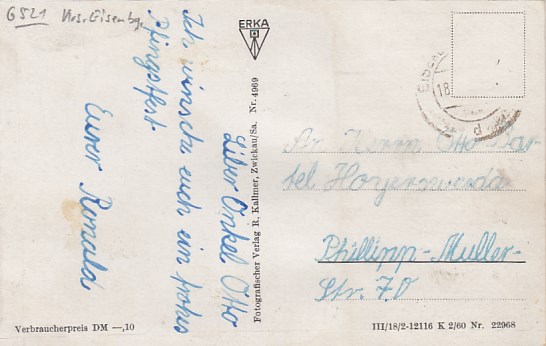 6521 Krs. Eisenbg.
ERKA
Liber Onkel Otto
Ich wünsche euch ein frohes
Pfingstfest
Eurer Ronald
Fotografischer Verlag R. Kallmer, Zwickau/Sa. Nr. 4969
EISENB
18
d
An Herrn Otto Bar
tel Hoyerswerda
Phillipp-Muller-
Str. 70
Verbraucherpreis DM —,10
III/18/2-12116 K 2/60 Nr. 22968